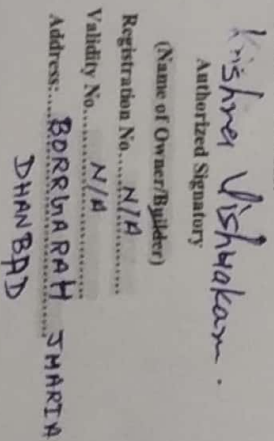 Krishna Vishwakarm.
Authorized Signatory
(Name of Owner/Builder)
Registration No....N/A..........
Validity No............N/A..........
Address:.....BORRGARAH JHARIA
DHANBAD